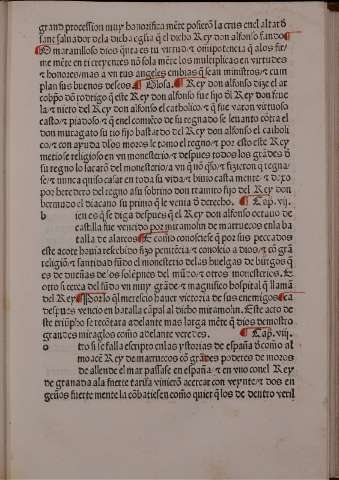 grand procession muy honorifica mẽte posierõ la crus en el altar ð
sanc saluador dela dicha eglia q̃ el dicho Rey don alfonso fundo
O marauilloso dios q̃nta es tu virtud ⁊ omnipotencia q̃ alos fir
me mẽte en ti creyentes nõ sola mẽte los multiplicas en virtudes
⁊ honores mas a vn tus angeles embias q̃ sean ministros ⁊ cum
plan sus buenos deseos. Glosa. Rey don alfonso dize el ar
cobp̃o dõ rodrigo q̃ este Rey don alfonso fue fijo ðl Rey don frue
la ⁊ nieto del Rey don alfonso el catholico ⁊ q̃ fue varon virtuoso
casto ⁊ piadoso ⁊ q̃ enel comẽço de su regnado se leuanto cõtra el
don muragato su tio fijo bastardo del Rey don alfonso el catholi
co ⁊ con ayuda ðlos moros le tomo el regno ⁊ por esto este Rey
metiose religioso en vn monesterio ⁊ despues todos los grãdes ð
su regno lo sacarõ del monesterio a vn q̃ nõ q̃so ⁊ fizieron q̃ regna
se ⁊ nunca quiso casar en toda su vida ⁊ biuio casta mente ⁊ dexo
por heredero del regno asu sobrino don ramiro fijo del Rey don
bermudo el diacano su primo q̃ le venia ð derecho. Cap. vij.
b ien es q̃ se diga despues q̃l el Rey don alfonso octauo de
castilla fue vencido por miramolin de marruecos enla ba
talla de alarcos. E como conosciese q̃ por sus peccados
este açote hauia rescebido fizo penitẽcia ⁊ conosio a dios ⁊ cõ grã
religiõ ⁊ santidad fũdo el monesterio delas huelgas de burgos q̃
es de dueñas de los solẽpnes del mũdo ⁊ otros monesterios. E
otro si cerca del fũdo vn muy grãde ⁊ magnifico hospital q̃ llamã
del Rey. Por lo q̃l merescio hauer victoria de sus enemigos ca
despues vencio en batalla cãpal al dicho miramolin. Este acto de
este triũpho se recõtara adelante mas larga mẽte q̃ dios demostro
grandes miraglos comõ adelante veredes. Cap. viij.
o tro si se falla escripto enlas ystorias de españa ð comõ al
moacẽ Rey de marruecos cõ grãdes poderes de moros
de allende el mar passase en españa ⁊ en vno conel Rey
de granada ala fuerte tarifa vinierõ a cercar con veynte ⁊ dos en
geños fuerte mente la cõbatiesen comõ quier q̃ los de dentro vezil